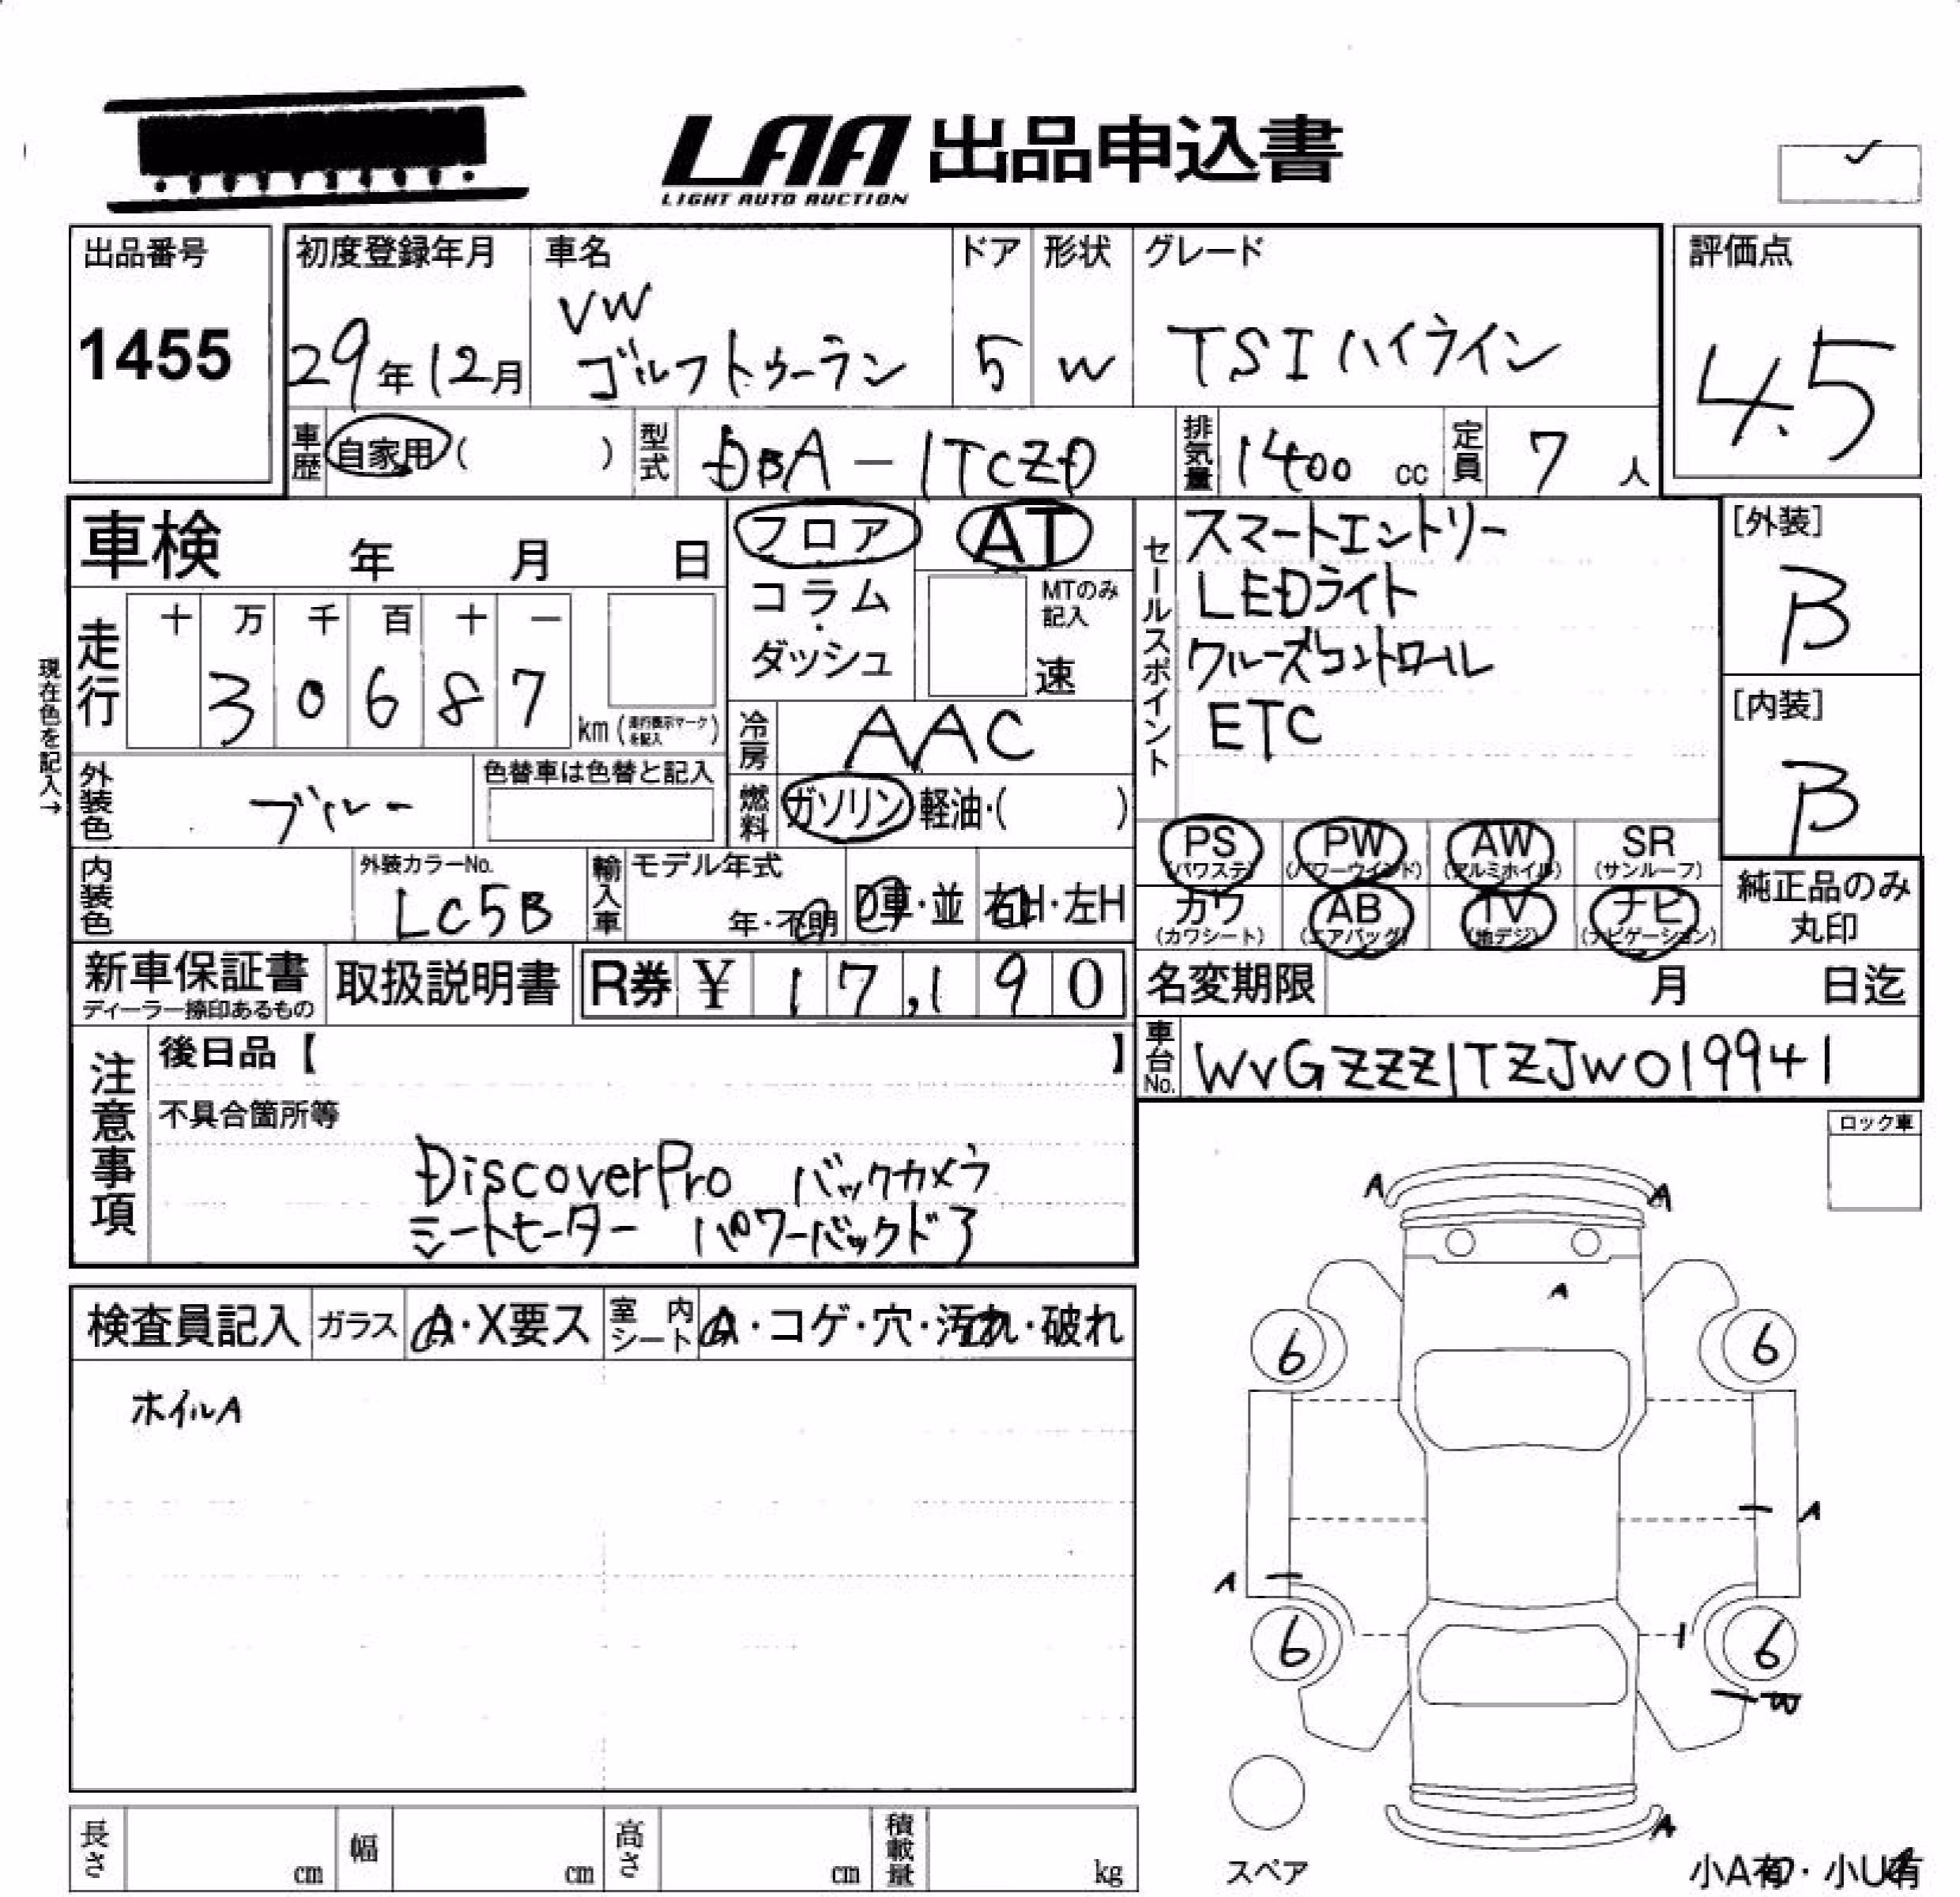 LAA 出品申込書
LIGHT AUTO AUCTION
出品番号
1455
初度登録年月
29年12月
車名
VW
ゴルフトゥーラン
ドア
5
形状
W
グレード
TSIハイライン
評価点
4.5
車歴 自家用 ( )
型式 DBA-1TCZD
排気量 1400 cc
定員 7 人
車検 年 月 日
フロア
コラム
・
ダッシュ
AT
MTのみ
記入
速
セールスポイント
スマートエントリー
LEDライト
クルーズコントロール
ETC
[外装]
B
[内装]
B
現在色を記入→
走行
十 万 千 百 十 一
3 0 6 8 7
km (走行表示マークを記入)
冷房 AAC
外装色 ブルー
色替車は色替と記入
燃料 ガソリン 軽油・( )
内装色
外装カラーNo.
LC5B
輸入車
モデル年式
年・不明
D車・並
右H・左H
PS (パワステ)
PW (パワーウインド)
AW (アルミホイル)
SR (サンルーフ)
カワ (カワシート)
AB (エアバッグ)
TV (地デジ)
ナビ (ナビゲーション)
純正品のみ
丸印
新車保証書
ディーラー捺印あるもの
取扱説明書
R券 ¥ 17,190
名変期限 月 日迄
車台No. WVGZZZ1TZJW019941
注意事項
後日品【 】
不具合箇所等
DiscoverPro バックカメラ
シートヒーター パワーバックドア
ロック車
検査員記入
ガラス A・X要ス
室内シート A・コゲ・穴・汚れ・破れ
ホイルA
A A
A
6 6
A
A
6 6
W
A
スペア
小A有・小U有
長さ cm
幅 cm
高さ cm
積載量 kg